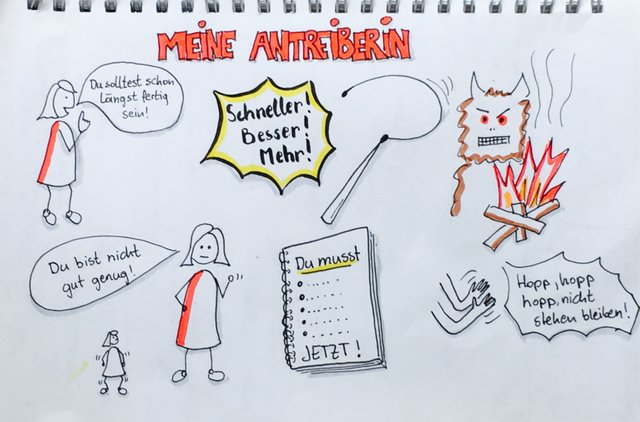 MEINE ANTREIBERIN
Du solltest schon
Längst fertig
sein!
Schneller!
Besser!
Mehr!
Du bist nicht
gut genug!
Du musst
JETZT!
Hopp, hopp
hopp, nicht
stehen bleiben!